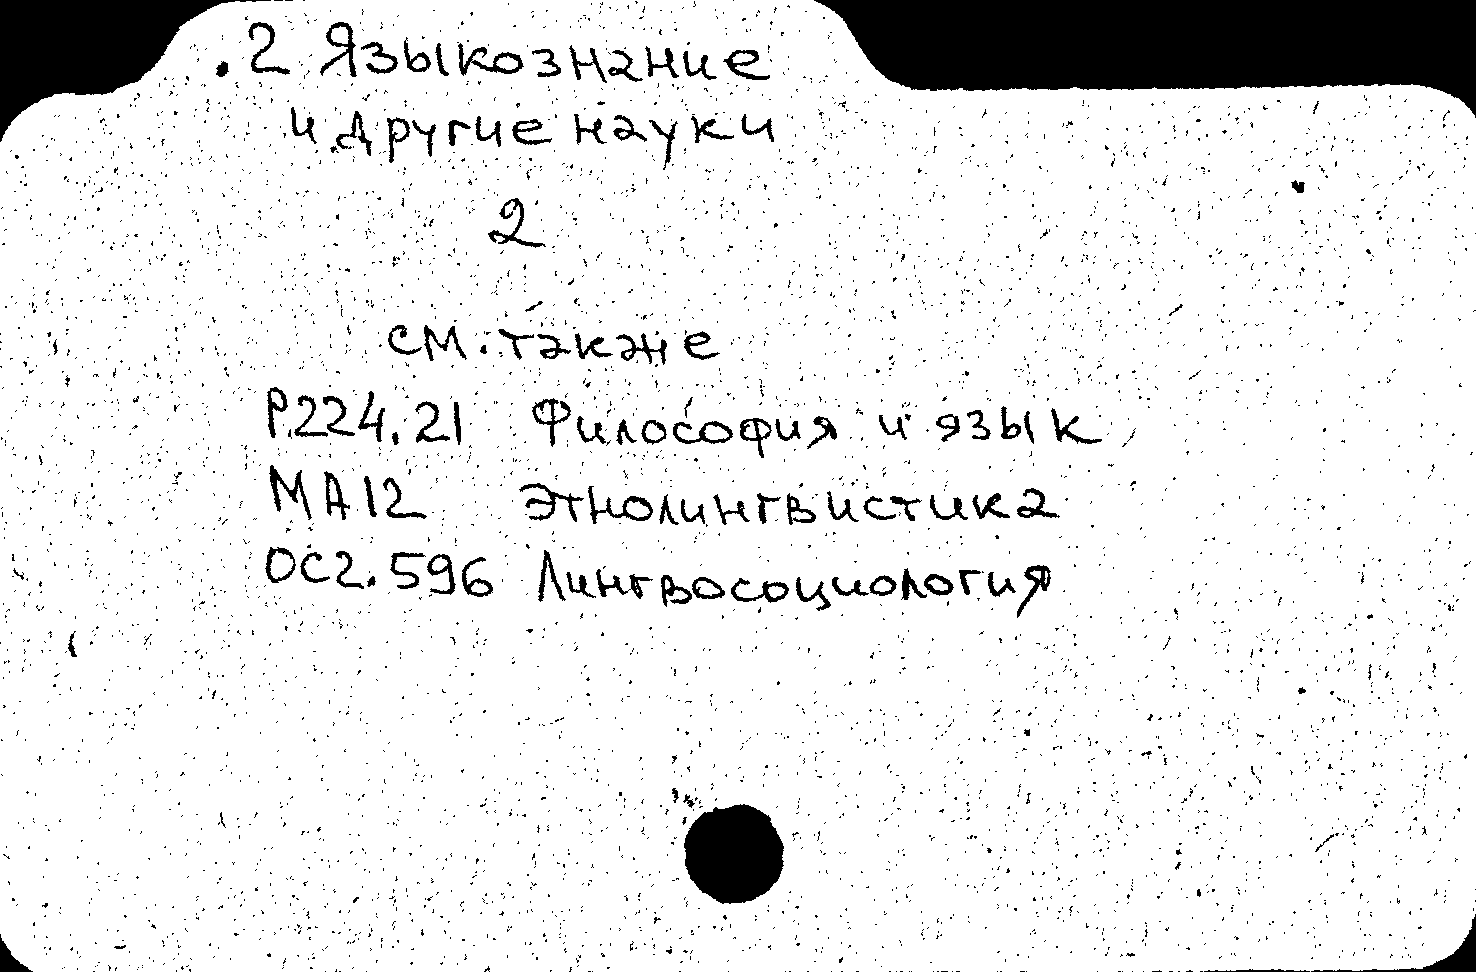 .2 Языкознание
и другие науки
2
см. также
Р.224.21 Философия и язык
МА12 Этнолингвистика
ОС2.596 Лингвосоциология